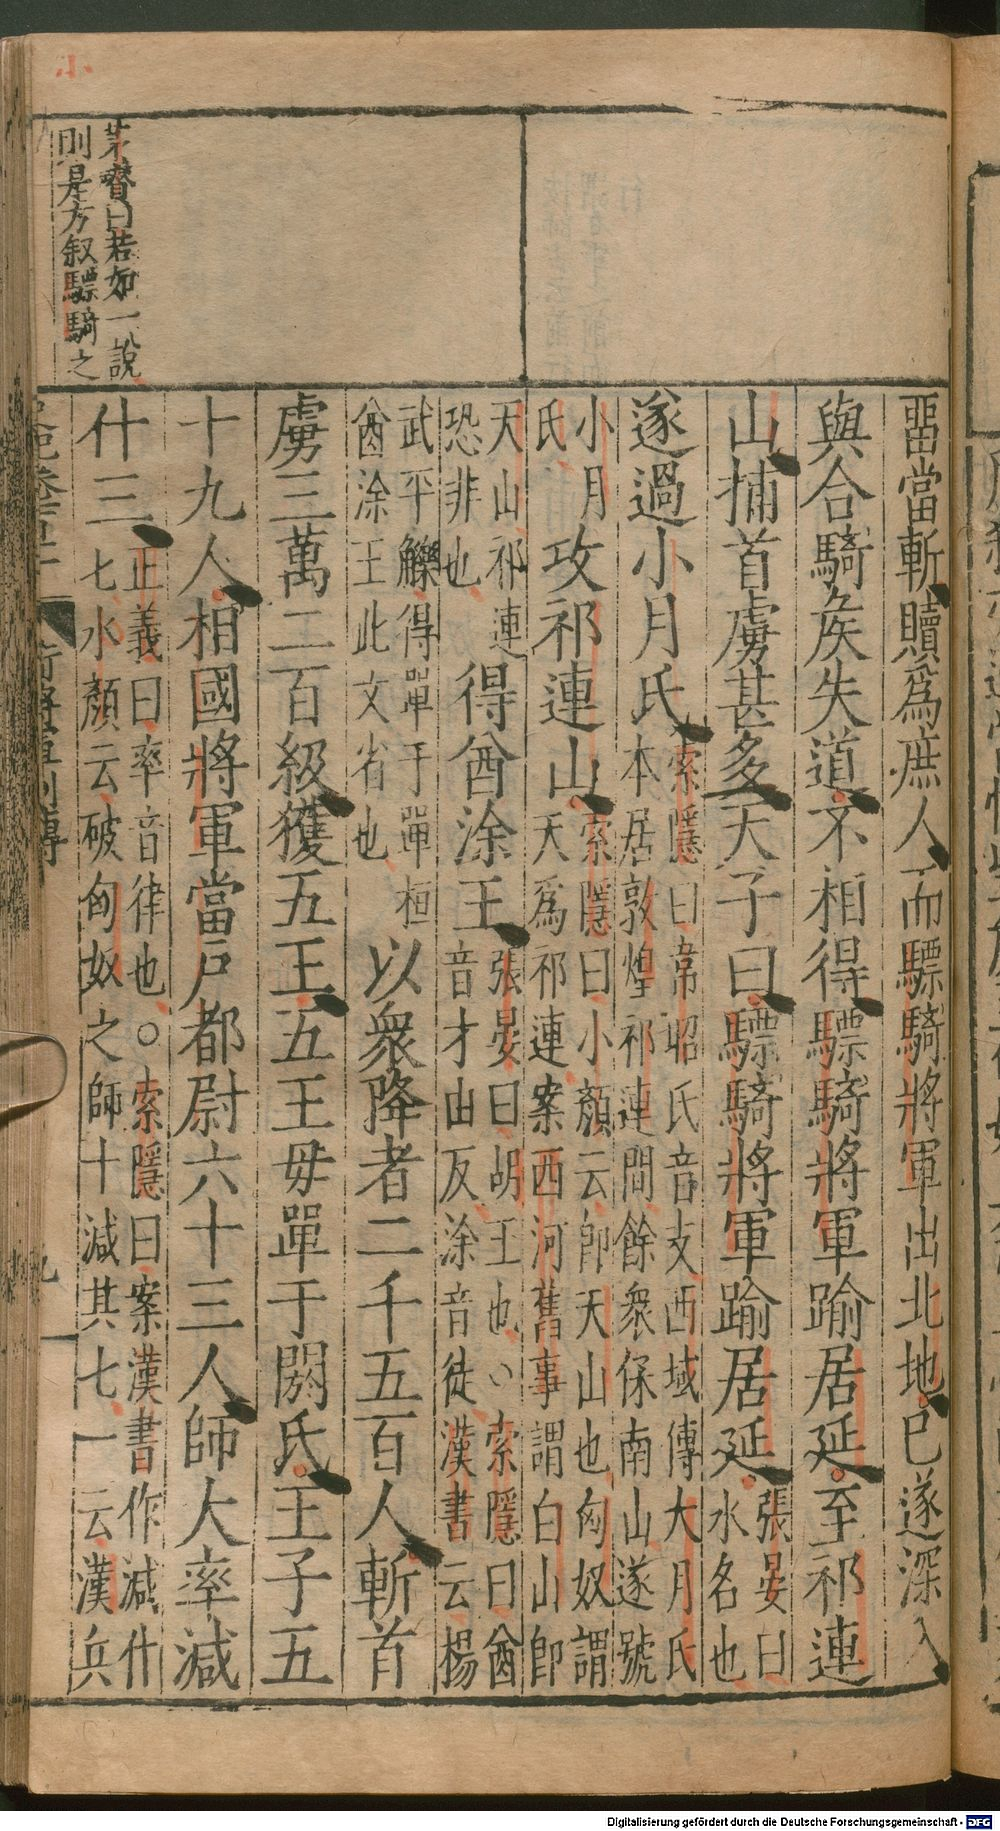 茅瓚曰若如一說
則是方叙驃騎之
畱當斬贖爲庶人而驃騎將軍出北地已遂深入
與合騎矦失道不相得驃騎將軍踰居延至祁連
山捕首虜甚多天子曰驃騎將軍踰居延張晏曰水名也
遂過小月氏索隱曰韋昭氏音支西域傳大月氏本居敦煌祁連間餘衆保南山遂號
小月氏攻祁連山索隱曰小顏云卽天山也匈奴謂天爲祁連案西河舊事謂白山卽
天山祁連恐非也得酋涂王張晏曰胡王也索隱曰酋音才由反涂音徒漢書云楊
武平鱳得單于單桓酋涂王此文省也以衆降者二千五百人斬首
虜三萬二百級獲五王五王毋單于閼氏王子五
十九人相國將軍當戶都尉六十三人師大率減
什三正義曰率音律也○索隱曰案漢書作減什七水顏云破匈奴之師十減其七一云漢兵
九
Digitalisierung gefördert durch die Deutsche Forschungsgemeinschaft - DFG